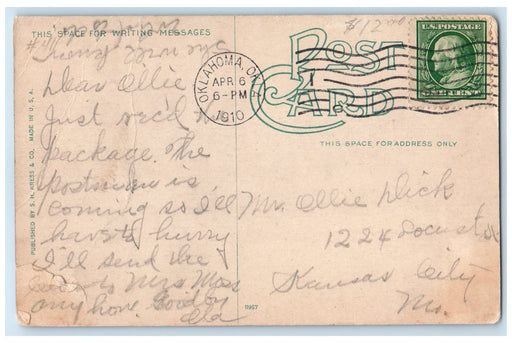 THIS SPACE FOR WRITING MESSAGES
$12.00
POST
CARD
U.S. POSTAGE
ONE CENT
OKLAHOMA, OKLA.
APR 6
6-PM
1910
THIS SPACE FOR ADDRESS ONLY
Dear Ollie
Just rec'd
package. The
postman is
coming so I'll
have to hurry
I'll send the
Mrs Moss
any how. Good by
Mr. Ollie Dick
1224 Locust St
Kansas City
Mo.
PUBLISHED BY S. H. KRESS & CO. MADE IN U. S. A.
11967